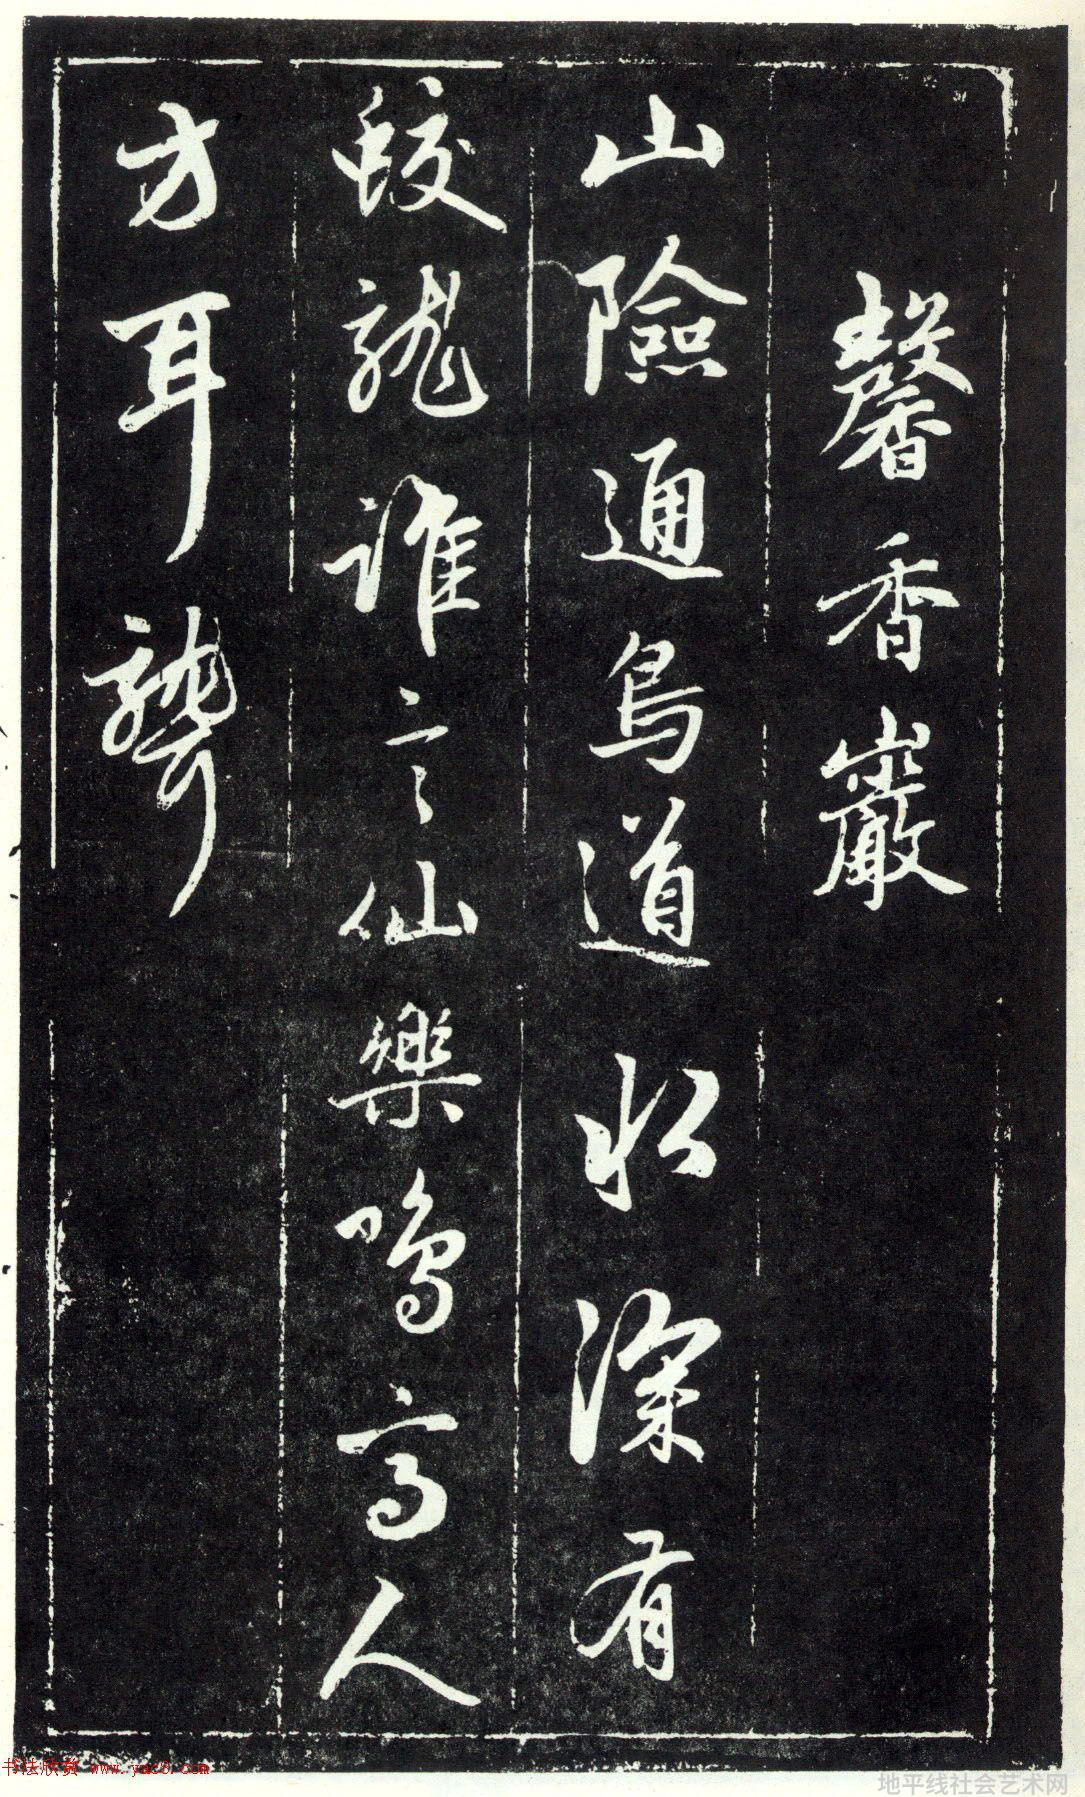 馨香巖
山險通鳥道松深有
蛟龍誰言仙樂鳴高人
方耳聾
书法欣赏 www.yac8.com
地平线社会艺术网